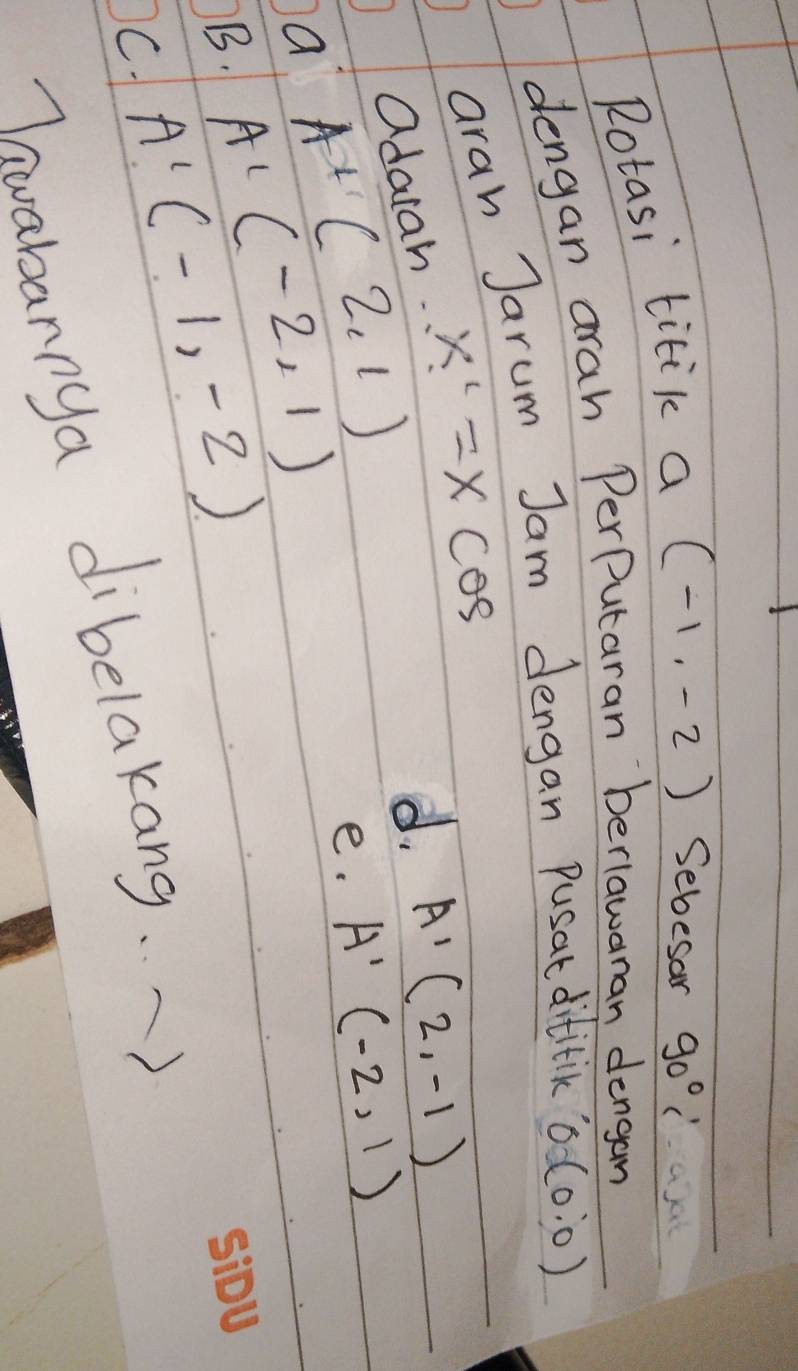 Rotasi titik a (-1, -2) sebesar 90°
dengan arah Perputaran berlawanan dengan
arah Jarum Jam dengan Pusat dititik O(0,0)
adalah.. x' = x cos
a. A' (2, 1)
B. A' (-2, 1)
C. A' (-1, -2)
d. A' (2, -1)
e. A' (-2, 1)
Jawabannya dibelakang..
SiDU